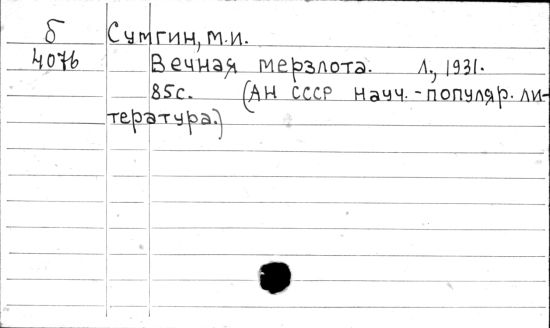 б
4076
Сумгин, М.И.
Вечная мерзлота. Л., 1931.
85с. (АН СССР науч.-популяр. ли-
тература.)